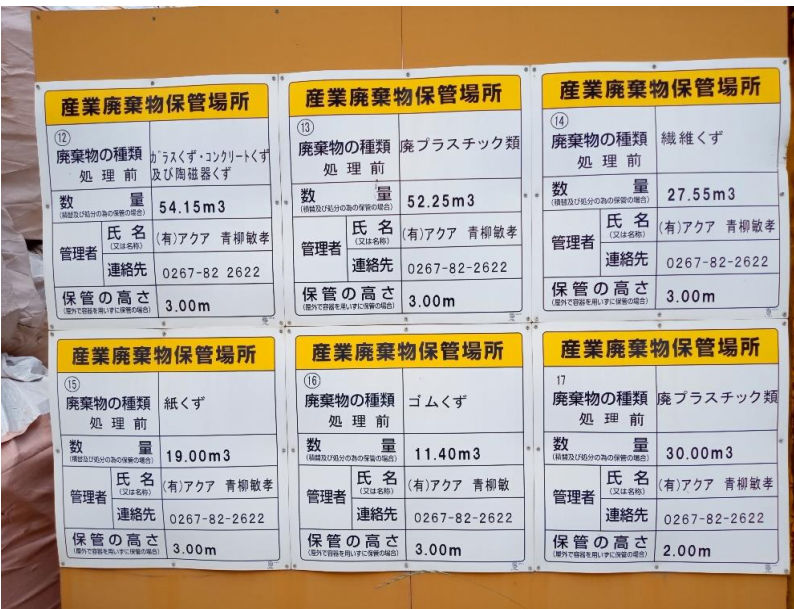 産業廃棄物保管場所
⑫
廃棄物の種類
処理前
ガラスくず・コンクリートくず
及び陶磁器くず
数量
(積替及び処分の為の保管の場合)
54.15m3
管理者
氏名
(又は名称)
(有)アクア 青柳敏孝
連絡先
0267-82 2622
保管の高さ
(屋外で容器を用いずに保管の場合)
3.00m
産業廃棄物保管場所
⑬
廃棄物の種類
処理前
廃プラスチック類
数量
(積替及び処分の為の保管の場合)
52.25m3
管理者
氏名
(又は名称)
(有)アクア 青柳敏孝
連絡先
0267-82-2622
保管の高さ
(屋外で容器を用いずに保管の場合)
3.00m
産業廃棄物保管場所
⑭
廃棄物の種類
処理前
繊維くず
数量
(積替及び処分の為の保管の場合)
27.55m3
管理者
氏名
(又は名称)
(有)アクア 青柳敏孝
連絡先
0267-82-2622
保管の高さ
(屋外で容器を用いずに保管の場合)
3.00m
産業廃棄物保管場所
⑮
廃棄物の種類
処理前
紙くず
数量
(積替及び処分の為の保管の場合)
19.00m3
管理者
氏名
(又は名称)
(有)アクア 青柳敏孝
連絡先
0267-82-2622
保管の高さ
(屋外で容器を用いずに保管の場合)
3.00m
産業廃棄物保管場所
⑯
廃棄物の種類
処理前
ゴムくず
数量
(積替及び処分の為の保管の場合)
11.40m3
管理者
氏名
(又は名称)
(有)アクア 青柳敏
連絡先
0267-82-2622
保管の高さ
(屋外で容器を用いずに保管の場合)
3.00m
産業廃棄物保管場所
17
廃棄物の種類
処理前
廃プラスチック類
数量
(積替及び処分の為の保管の場合)
30.00m3
管理者
氏名
(又は名称)
(有)アクア 青柳敏孝
連絡先
0267-82-2622
保管の高さ
(屋外で容器を用いずに保管の場合)
2.00m